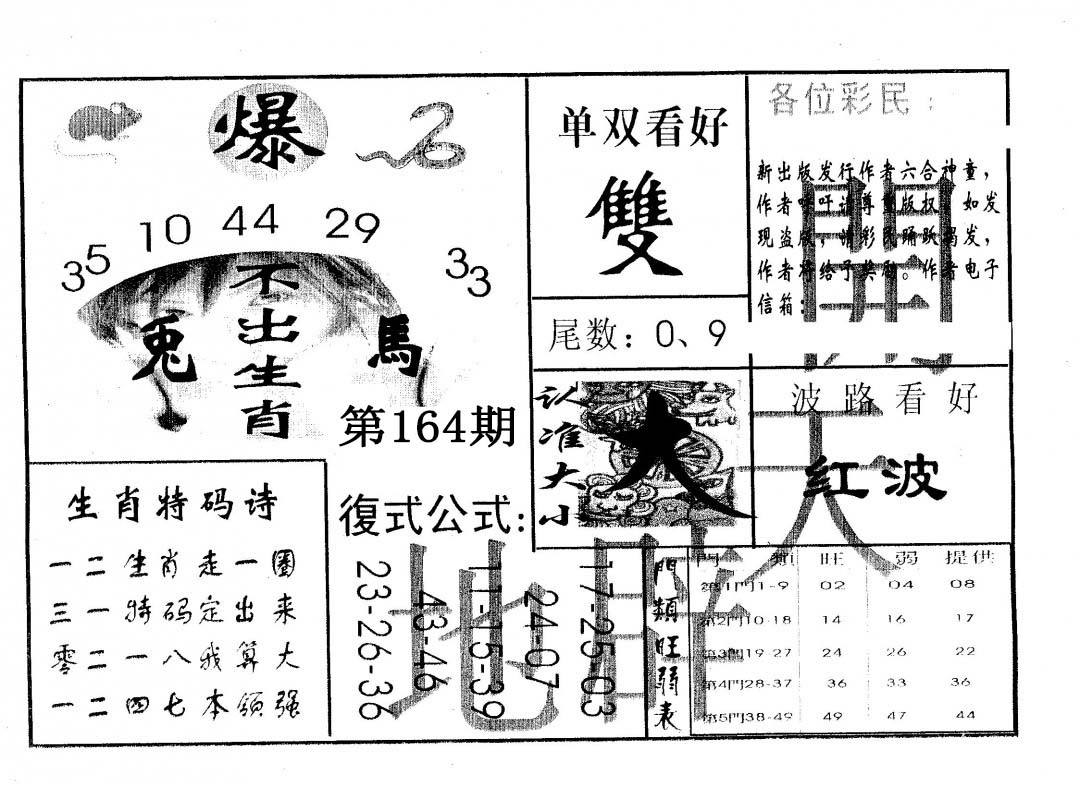 爆
35 10 44 29 33
不出生肖
兔
馬
第164期
单双看好
雙
尾数：0、9
各位彩民：
新出版发行作者六合神童，
作者呼吁请尊重版权，如发
现盗版，请彩民踊跃揭发，
作者将给予奖励。作者电子
信箱：
開
认准大小
大
波路看好
红波
天
生肖特码诗
一二生肖走一圈
三一特码定出来
零二一八我算大
一二四七本领强
復式公式：
23-26-36
43-46
11-15-39
24-07
17-25-03
地
門類旺弱表
門 類 旺 弱 提供
第1門1-9 02 04 08
第2門10-18 14 16 17
第3門19-27 24 26 22
第4門28-37 36 33 36
第5門38-49 49 47 44